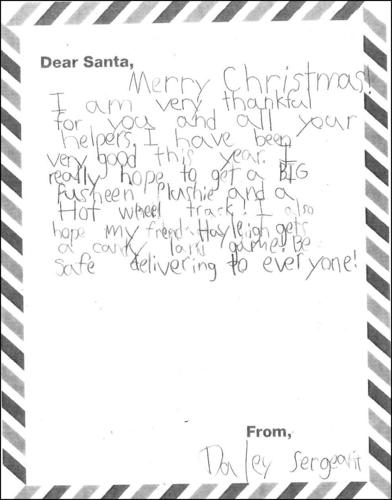 Dear Santa,
Merry Christmas!
I am very thankful
for you and all your
helpers. I have been
very good this year. I
really hope to get a BIG
Pusheen Plushie and a
Hot wheel track! I also
hope my friend Hayleigh gets
a candy land game! Be
safe delivering to everyone!
From,
Sergeant